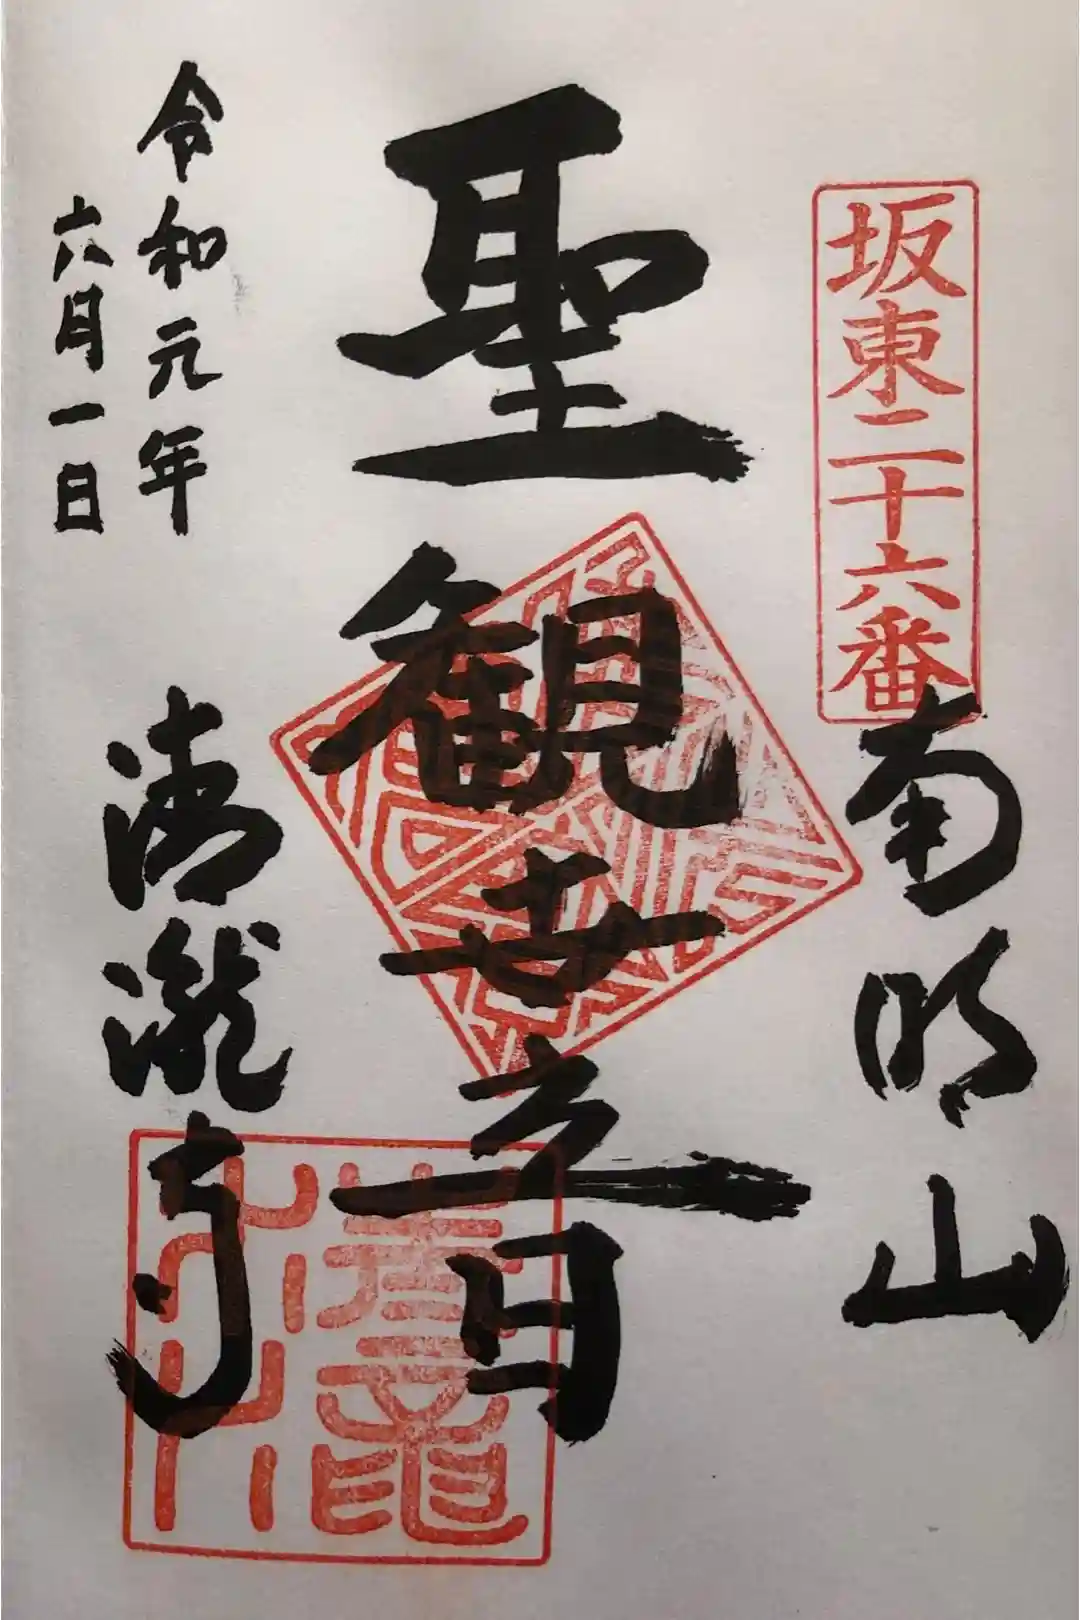 坂東二十六番
南明山
聖観世音
令和元年
六月一日
清瀧寺